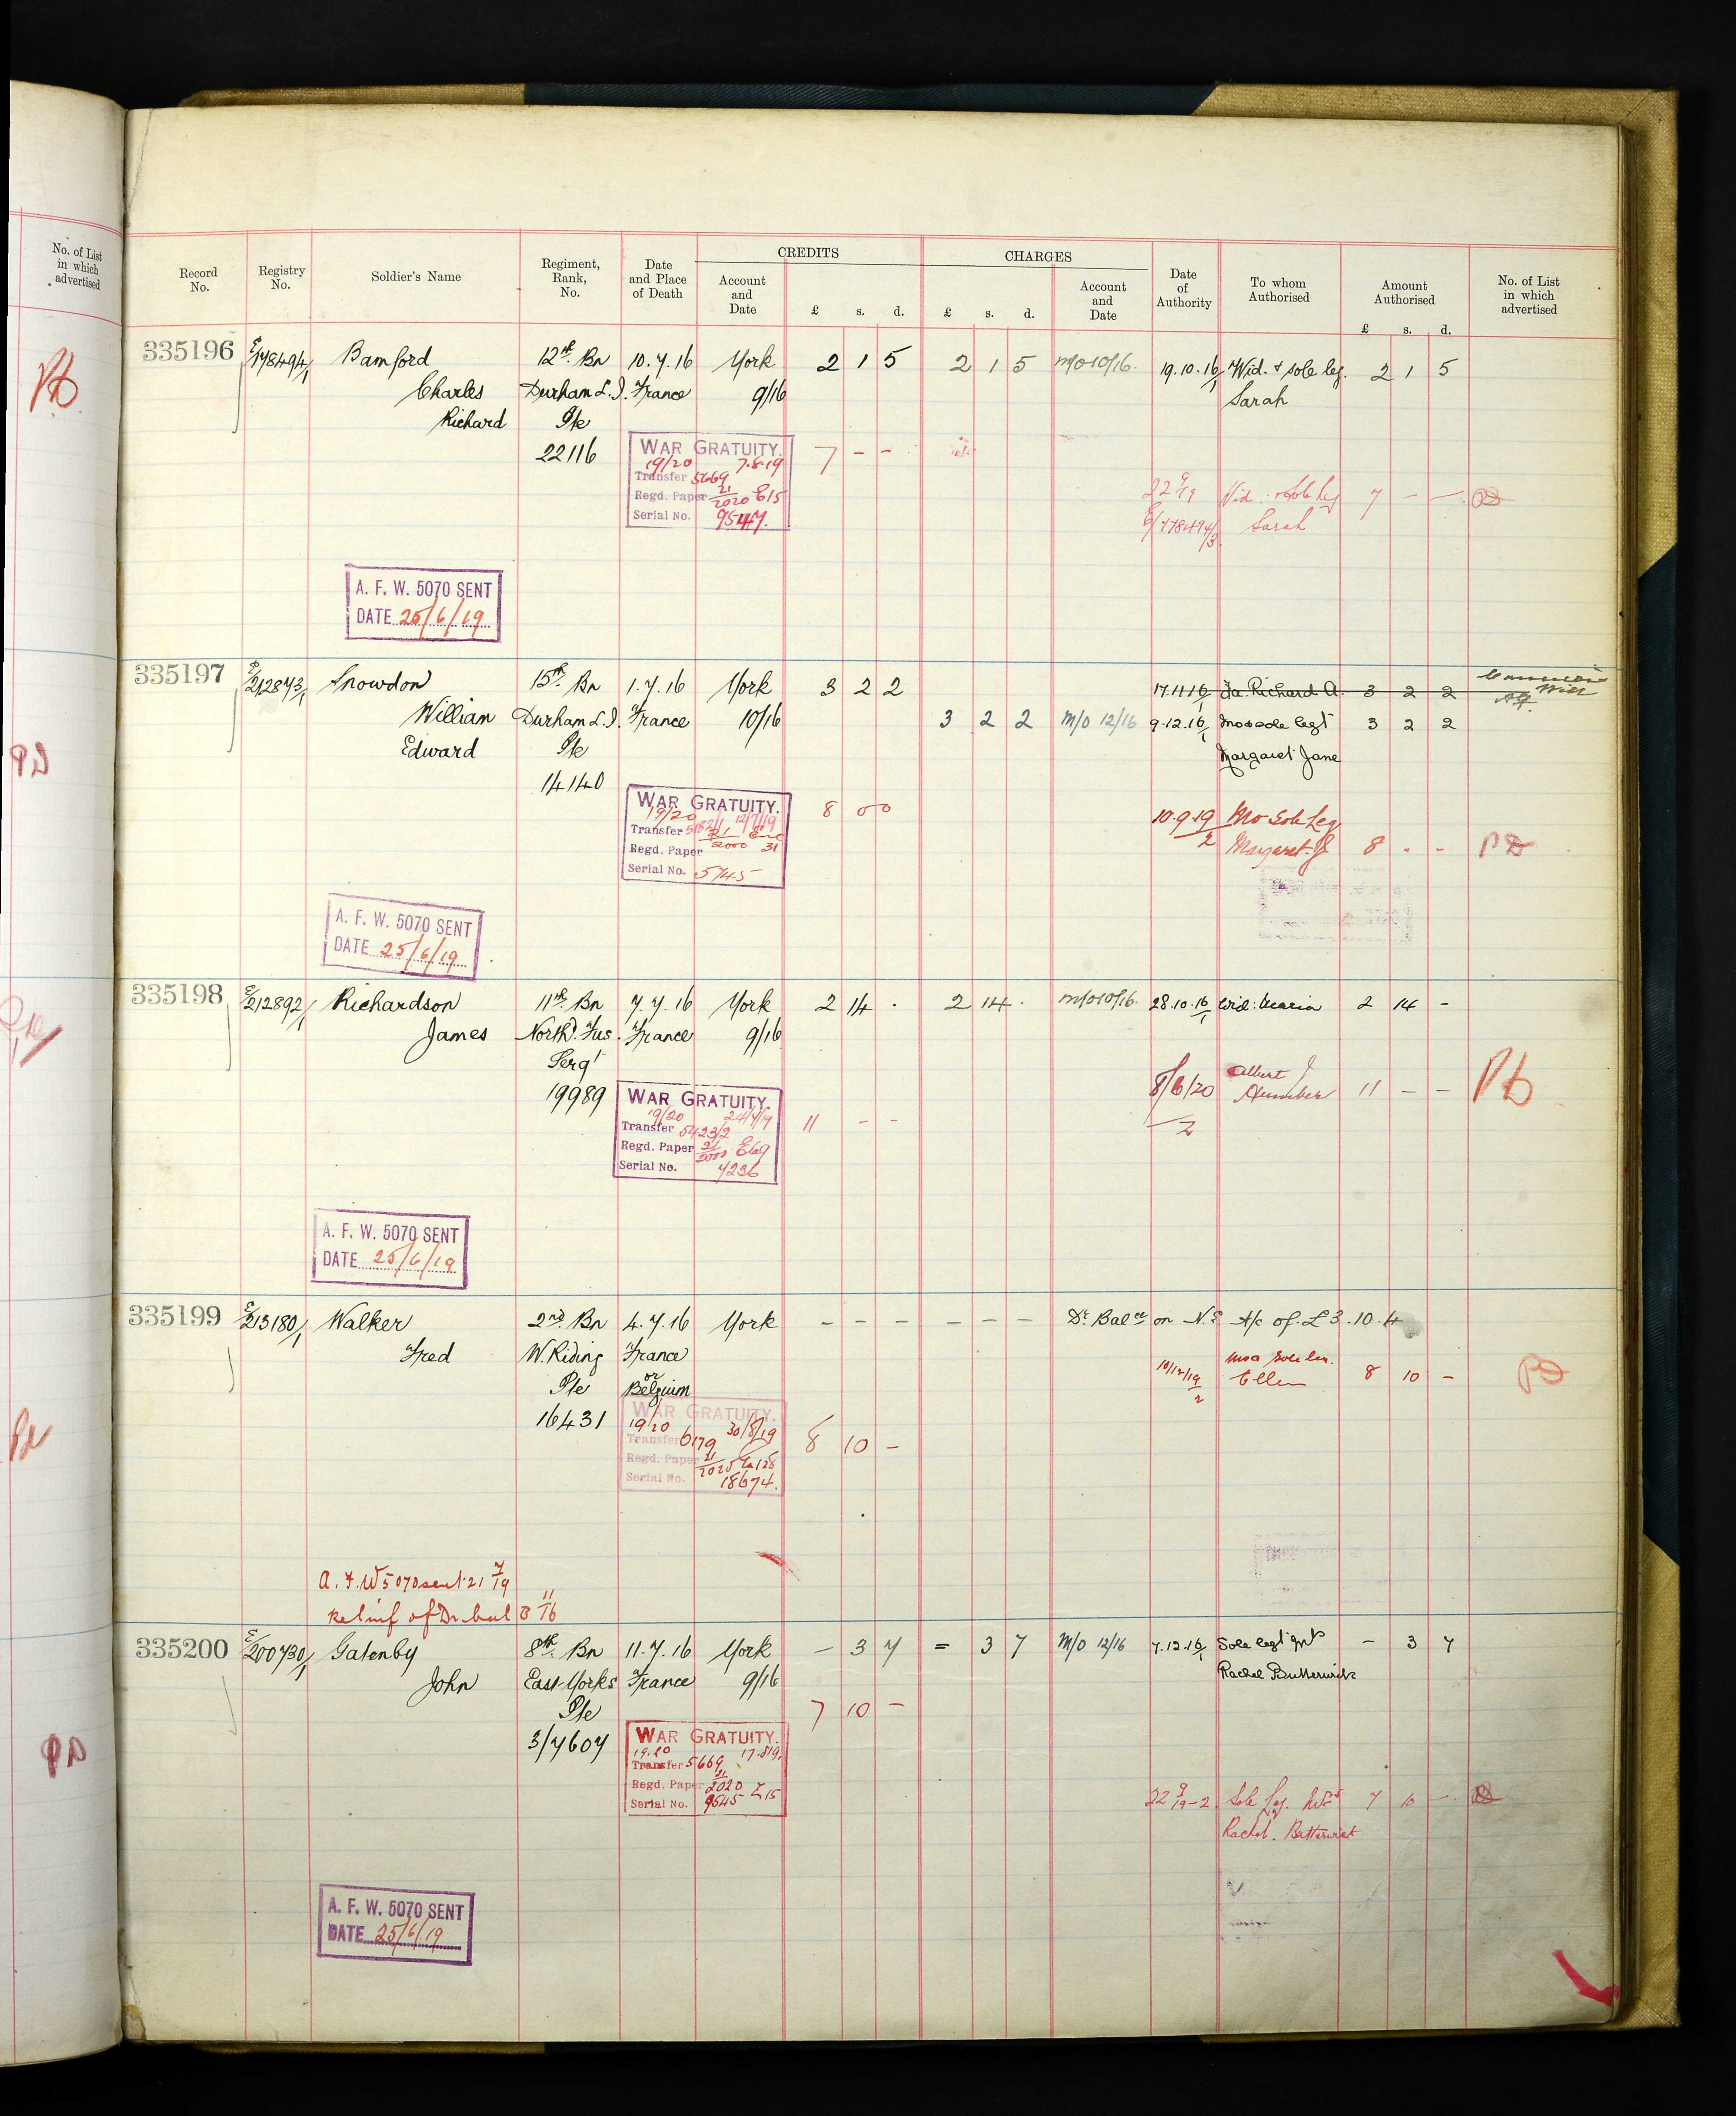 No. of List
in which
advertised
Record
No.
Registry
No.
Soldier's Name
Regiment,
Rank,
No.
Date
and Place
of Death
CREDITS
Account
and
Date
£ s. d.
CHARGES
£ s. d.
Account
and
Date
Date
of
Authority
To whom
Authorised
Amount
Authorised
£ s. d.
No. of List
in which
advertised
335196 E/178494/1 Bamford 12th Bn 10.7.16 York 2 1 5 2 1 5 M/O 10/16. 19.10.16/1 Wid. & sole leg. 2 1 5
Charles Durham L.I. France 9/16 Sarah
Richard Pte
22116
WAR GRATUITY.
19/20 7.8.19
Transfer 5669
Regd. Paper 21/2020 E15
Serial No. 9547.
7 - -
22 9/19 Wid. & Sole Leg 7 - -
E/178494/3 Sarah
A. F. W. 5070 SENT
DATE 25/6/19
335197 E/212873/1 Snowdon 15th Bn 1.7.16 York 3 2 2 17.11.16/1 Fa. Richard A. 3 2 2
William Durham L.I. France 10/16 3 2 2 M/O 12/16 9.12.16/1 Mo & sole legt 3 2 2
Edward Pte Margaret Jane
14140
WAR GRATUITY.
19/20 12/7/19
Transfer
Regd. Paper 21/2000 31
Serial No. 5745
8 0 0
10.9.19/2 Mo Sole Leg
Margaret J 8 - - PD
A. F. W. 5070 SENT
DATE 25/6/19
335198 E/212892/1 Richardson 11th Bn 7.7.16 York 2 14 . 2 14 . M/O 10/16. 28.10.16/1 Wid: Maria 2 14 -
James North. Fus. France 9/16
Sergt
19989
WAR GRATUITY.
19/20 24/7/19
Transfer 5423/2
Regd. Paper 21/2000 E69
Serial No. 7236
11 - -
8/6/20 Albert J 11 - -
2
A. F. W. 5070 SENT
DATE 25/6/19
335199 E/213180/1 Walker 2nd Bn 4.7.16 York - - - - - - Dr Balce on N.E. A/c of £3.10.4
Fred W. Riding France
Pte or
Belgium
16431
10/12/19/2 Mo & Sole leg.
Ellen 8 10 -
WAR GRATUITY.
19/20 30/8/19
Transfer 6179
Regd. Paper 21/2020 Ea128
Serial No. 18674.
8 10 -
A.F.W 5070 sent 21 7/19
Relief of Dr. bal 3 11/16
335200 E/200730/1 Gatenby 8th Bn 11.7.16 York - 3 7 = 3 7 M/O 12/16 7.12.16/1 Sole legt Mrs - 3 7
John East Yorks France 9/16 Rachel Butterwick
Pte
3/7607
7 10 -
WAR GRATUITY.
19.20 17.8.19
Transfer 5669
Regd. Paper 21/2020 Z 15
Serial No. 9545
22 9/19-2 Sole Leg. Mrs 7 10 -
Rachel. Butterwick
A. F. W. 5070 SENT
DATE 25/6/19